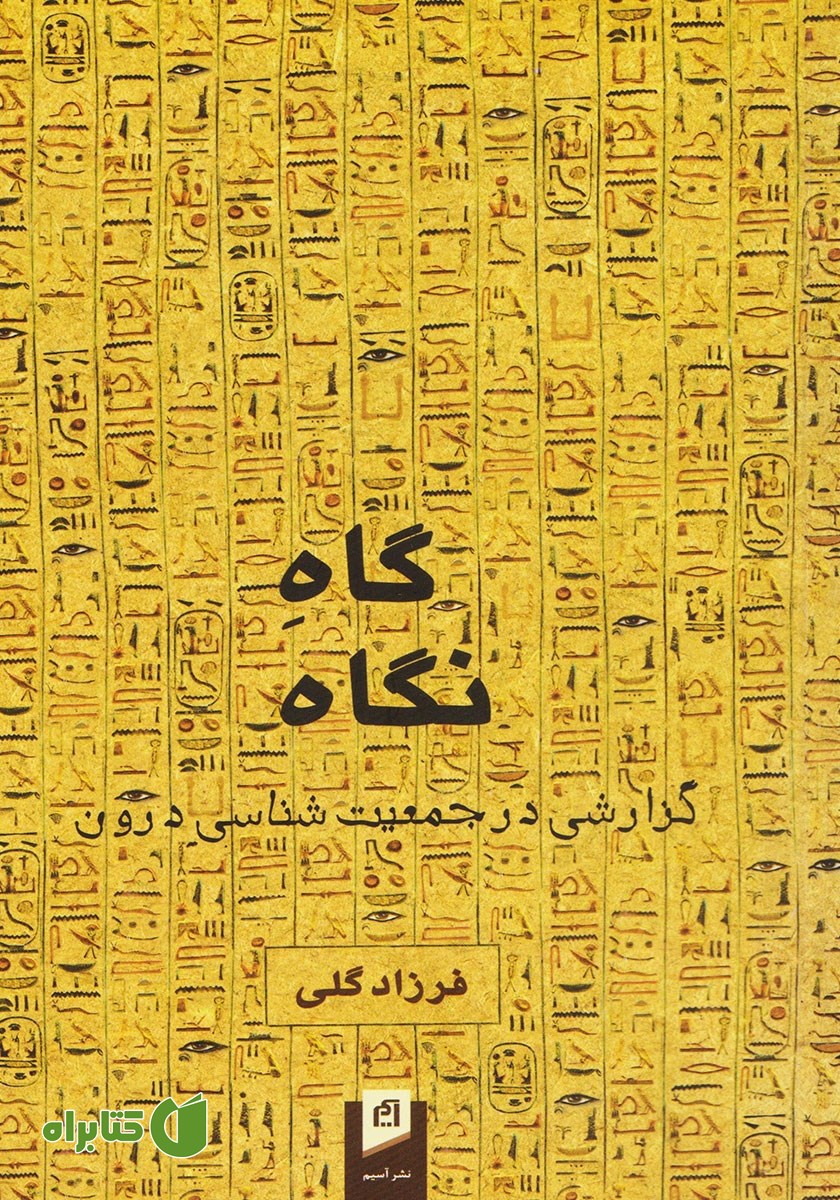 گاهِ
نگاه
گزارشی در جمعیت شناسی درون
فرزاد گلی
نشر آسیم
کتابراه